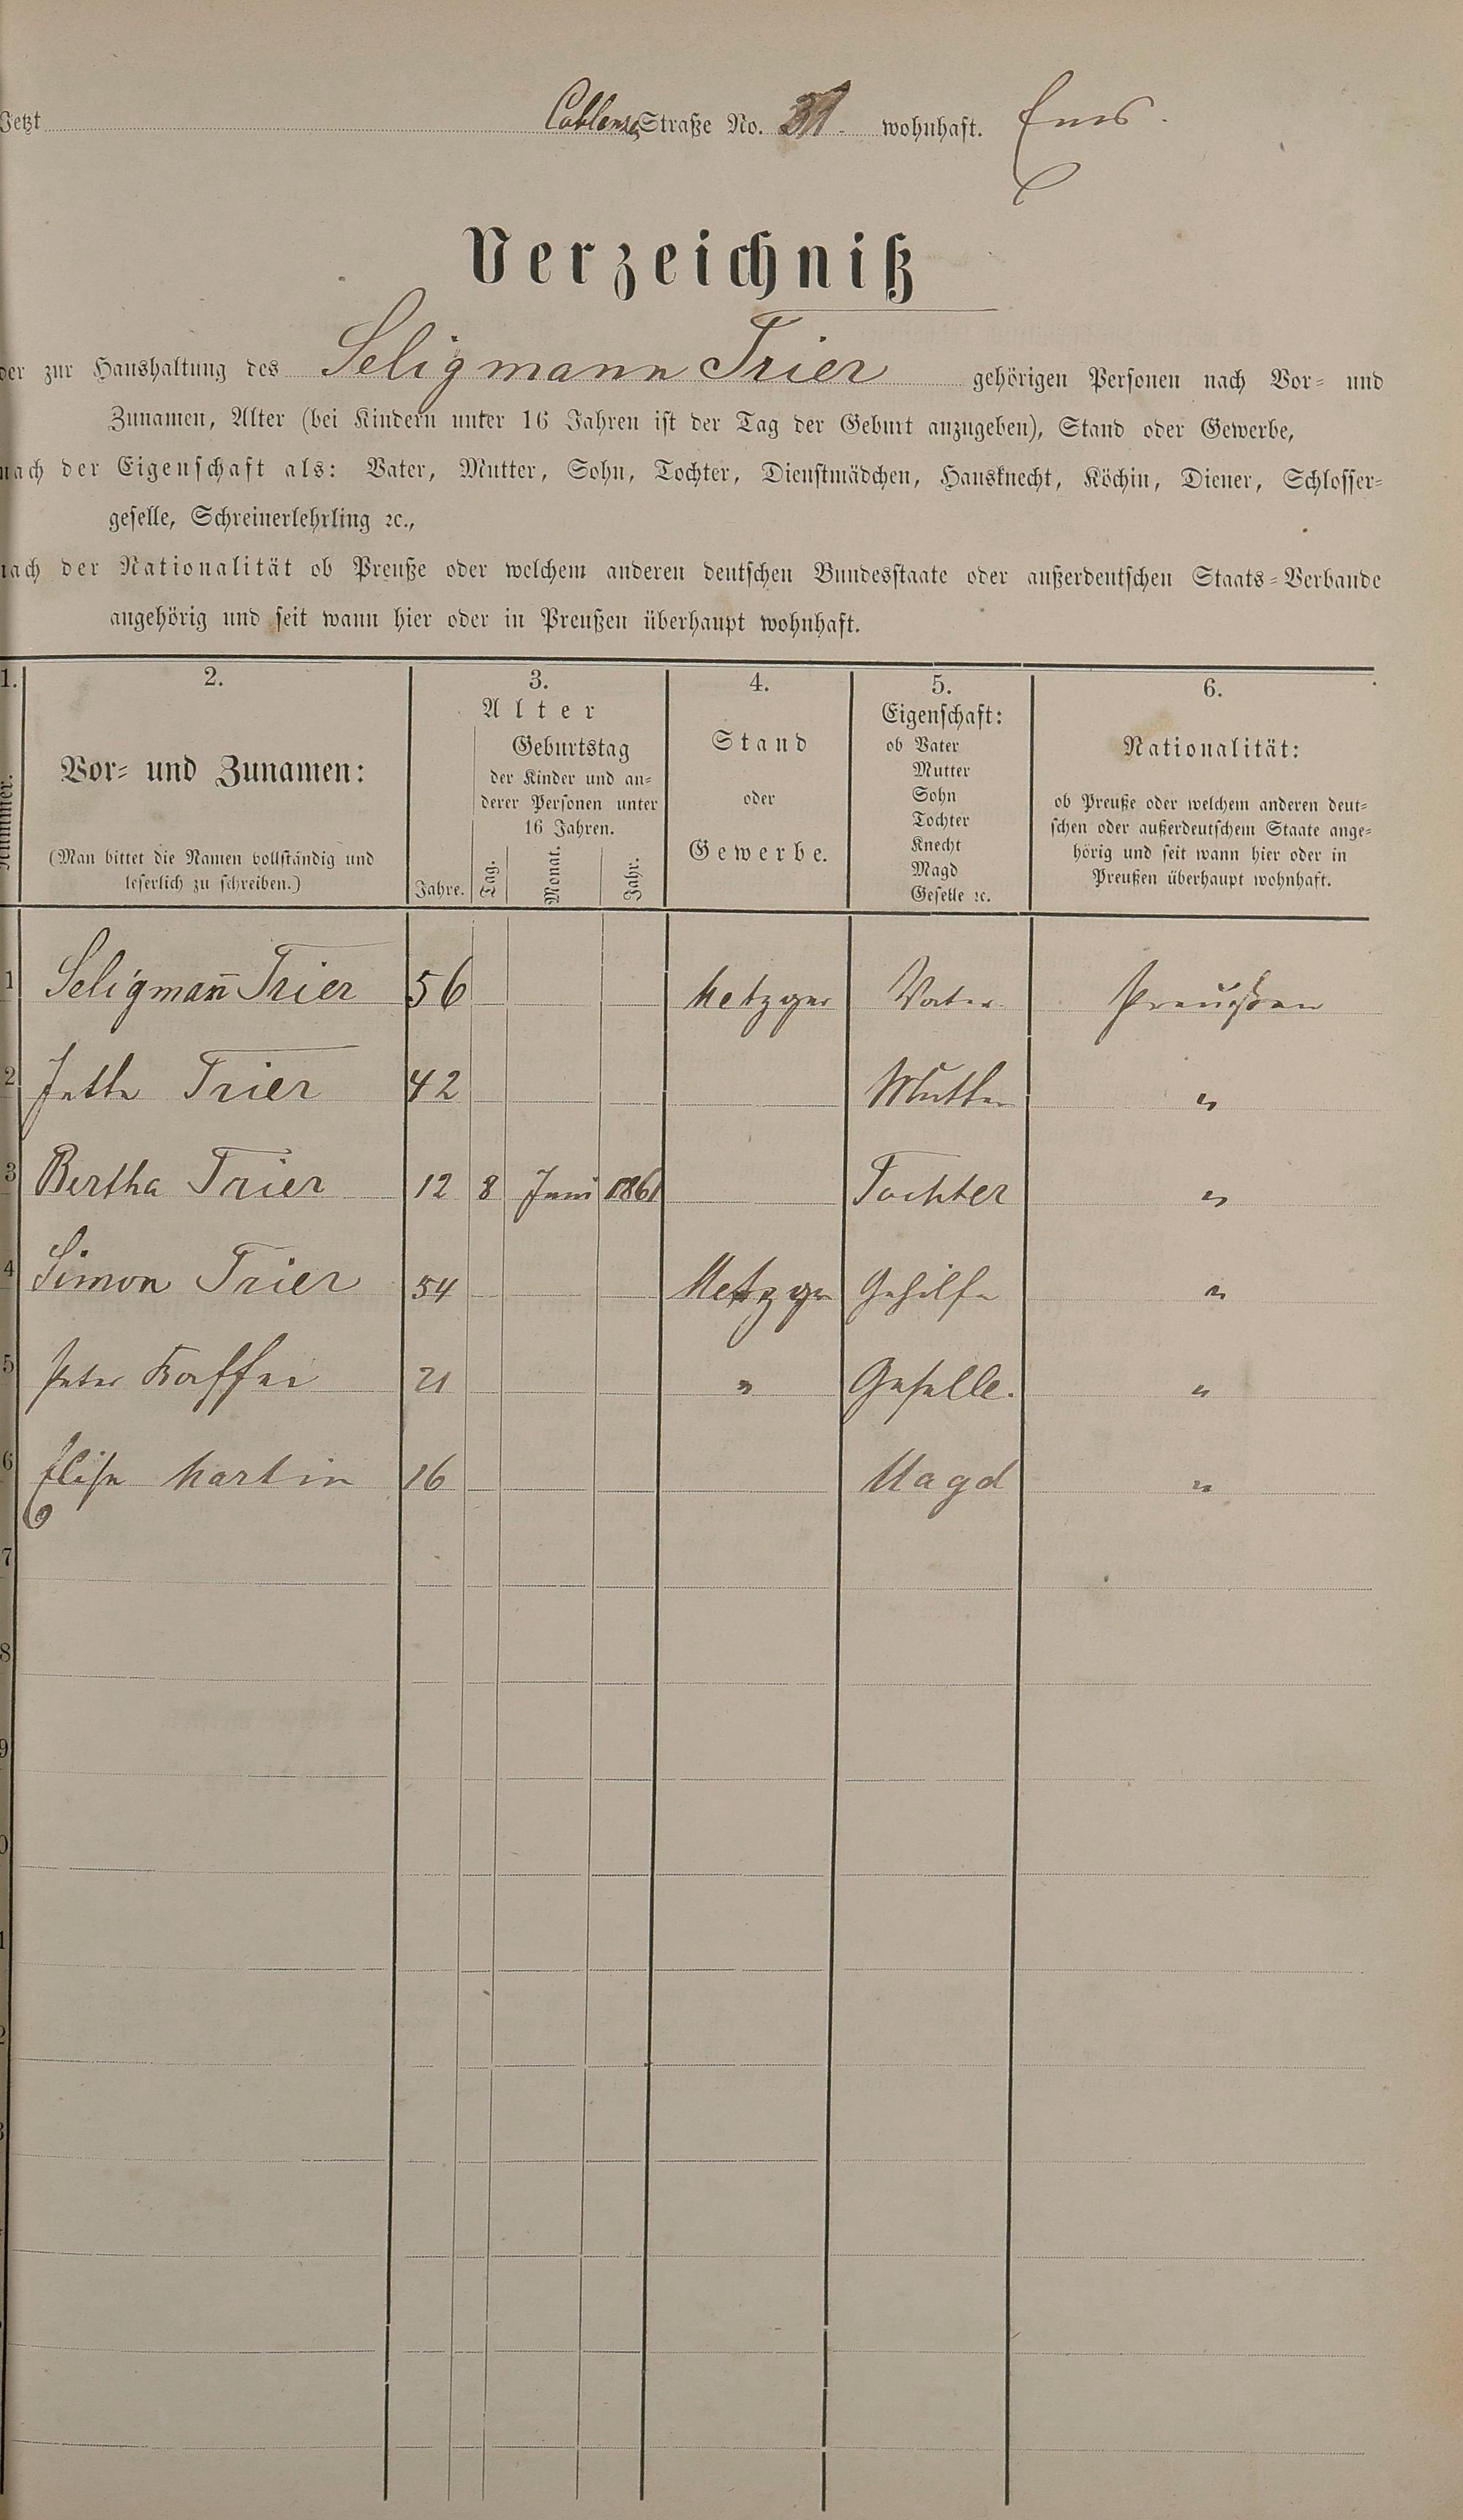 Jetzt Coblenzer Straße No. 31. wohnhaft. Ems.
Verzeichniß
der zur Haushaltung des Seligmann Trier gehörigen Personen nach Vor- und
Zunamen, Alter (bei Kindern unter 16 Jahren ist der Tag der Geburt anzugeben), Stand oder Gewerbe,
nach der Eigenschaft als: Vater, Mutter, Sohn, Tochter, Dienstmädchen, Hausknecht, Köchin, Diener, Schlosser-
geselle, Schreinerlehrling ꝛc.,
nach der Nationalität ob Preuße oder welchem anderen deutschen Bundesstaate oder außerdeutschen Staats-Verbande
angehörig und seit wann hier oder in Preußen überhaupt wohnhaft.
1. 2. 3. 4. 5. 6.
Nummer.
Vor- und Zunamen:
(Man bittet die Namen vollständig und
leserlich zu schreiben.)
Alter
Jahre.
Geburtstag
der Kinder und an-
derer Personen unter
16 Jahren.
Tag. Monat. Jahr.
Stand
oder
Gewerbe.
Eigenschaft:
ob Vater
Mutter
Sohn
Tochter
Knecht
Magd
Geselle ꝛc.
Nationalität:
ob Preuße oder welchem anderen deut-
schen oder außerdeutschem Staate ange-
hörig und seit wann hier oder in
Preußen überhaupt wohnhaft.
1 Seligman̄ Trier 56 Metzger Vater Preußen
2 Jette Trier 42 Mutter "
3 Bertha Trier 12 8 Juni 1861 Tochter "
4 Simon Trier 54 Metzger Gehilfe "
5 Peter 21 " Geselle. "
6 Elise Martin 16 Magd "
7
8
9
0
1
2
3